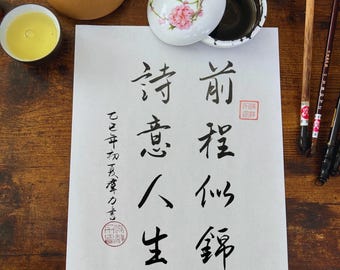 前程似錦
詩意人生
乙巳年初夏偉力書